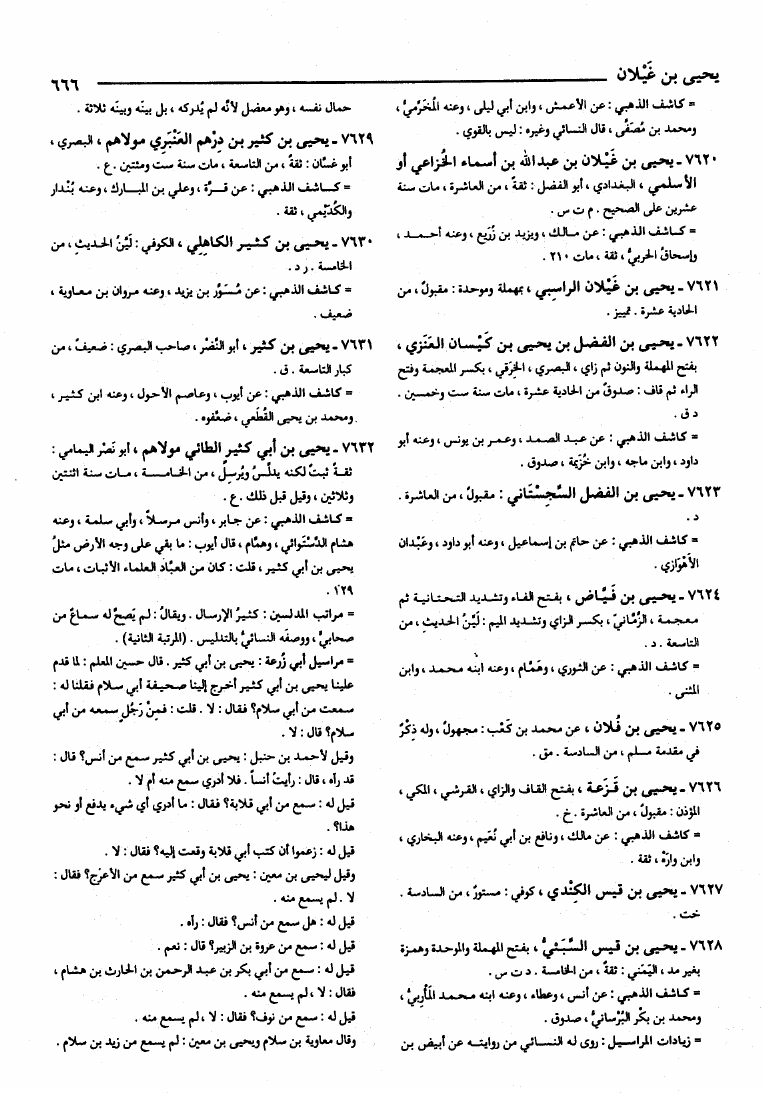 يحيى بن غَيْلان
٦٦٦
= كاشف الذهبي : عن الأعمش ، وابن أبي ليلى ، وعنه المُخَرِّميُّ ،
ومحمد بن مُصَفَّى ، قال النسائي وغيره : ليس بالقوي .
٧٦٢٠ ـ يحيى بن غَيْلان بن عبدالله بن أسماء الخُزاعي أو
الأسلمي ، البغدادي ، أبو الفضل : ثقةٌ ، من العاشرة ، مات سنة
عشرين على الصحيح . م ت س .
= كاشف الذهبي : عن مالك ، ويزيد بن زُرَيع ، وعنه أحمد ،
وإسحاقُ الحربيُّ ، ثقة ، مات ٢١٠ .
٧٦٢١ ـ يحيى بن غَيْلان الراسبي ، بمهملة وموحدة : مقبولٌ ، من
الحادية عشرة . تمييز .
٧٦٢٢ ـ يحيى بن الفضل بن يحيى بن كَيْسان العَنَزي ،
بفتح المهملة والنون ثم زاي ، البصري ، الخِرَقي ، بكسر المعجمة وفتح
الراء ثم قاف : صدوقٌ من الحادية عشرة ، مات سنة ست وخمسين .
د ق .
= كاشف الذهبي : عن عبد الصمد ، وعمر بن يونس ، وعنه أبو
داود ، وابن ماجه ، وابن خُزَيمة ، صدوق .
٧٦٢٣ ـ يحيى بن الفضل السِّجِسْتاني : مقبولٌ ، من العاشرة .
د .
= كاشف الذهبي : عن حاتم بن إسماعيل ، وعنه أبو داود ، وعَبْدان
الأهْوازي .
٧٦٢٤ ـ يحيى بن فَيَّاض ، بفتح الفاء وتشديد التحتانية ثم
معجمة ، الزِّمَّانيّ ، بكسر الزاي وتشديد الميم : لَيِّنُ الحديث ، من
التاسعة . د .
= كاشف الذهبي : عن الثوري ، وهَمَّام ، وعنه ابنه محمد ، وابن
المثنى .
٧٦٢٥ ـ يحيى بن فُلان ، عن محمد بن كَعْب : مجهولٌ ، وله ذِكْرٌ
في مقدمة مسلم ، من السادسة . مق .
٧٦٢٦ ـ يحيى بن قَزَعة ، بفتح القاف والزاي ، القرشي ، المكي ،
المؤذن : مقبولٌ ، من العاشرة . خ .
= كاشف الذهبي : عن مالك ، ونافع بن أبي نُعَيم ، وعنه البخاري ،
وابن وارَهْ ، ثقة .
٧٦٢٧ ـ يحيى بن قيس الكِنْدي ، كوفي : مستورٌ ، من السادسة .
خت .
٧٦٢٨ ـ يحيى بن قيس السَّبَئيُّ ، بفتح المهملة والموحدة وهمزة
بغير مد ، اليَمَني : ثقةٌ ، من الخامسة . د ت س .
= كاشف الذهبي : عن أنس ، وعطاء ، وعنه ابنه محمد المَأْرِبيُّ ،
ومحمد بن بكْر البُرْسانيُّ ، صدوق .
= زيادات المراسيل : روى له النسائي من روايته عن أبيض بن
حمال نفسه ، وهو معضل لأنّه لم يُدركه ، بل بينَه وبينَه ثلاثة .
٧٦٢٩ ـ يحيى بن كثير بن دِرْهم العَنْبَري مولاهم ، البصري ،
أبو غسَّان : ثقةٌ ، من التاسعة ، مات سنة ست ومئتين . ع .
= كاشف الذهبي : عن قرَّة ، وعلي بن المبارك ، وعنه بُنْدار
والكُدَيْمي ، ثقة .
٧٦٣٠ ـ يحيى بن كثير الكاهِلي ، الكوفي : لَيِّنُ الحديث ، من
الخامسة . ر د .
= كاشف الذهبي : عن مُسَوَّر بن يزيد ، وعنه مروان بن معاوية ،
ضعيف .
٧٦٣١ ـ يحيى بن كثير ، أبو النَّضْر ، صاحب البصري : ضعيفٌ ، من
كبار التاسعة . ق .
= كاشف الذهبي : عن أيوب ، وعاصم الأحول ، وعنه ابن كثير ،
ومحمد بن يحيى القُطَعي ، ضعَّفوه .
٧٦٣٢ ـ يحيى بن أبي كثير الطائي مولاهم ، أبو نَصْر اليمامي :
ثقةٌ ثبتٌ لكنه يدلِّسُ ويُرسلُ ، من الخامسة ، مات سنة اثنتين
وثلاثين ، وقيل قبل ذلك . ع .
= كاشف الذهبي : عن جابر ، وأنس مرسلاً ، وأبي سلمة ، وعنه
هشام الدَّسْتَوائي ، وهمَّام ، قال أيوب : ما بقي على وجه الأرض مثلُ
يحيى بن أبي كثير ، قلت : كان من العبَّاد العلماء الأثبات ، مات
١٢٩ .
= مراتب المدلسين : كثيرُ الإرسال . ويقالُ : لم يَصِحَّ له سماعٌ من
صحابيٍّ ، ووصفَه النسائيُّ بالتدليس . (المرتبة الثانية) .
= مراسيل أبي زُرعة : يحيى بن أبي كثير . قال حسين المعلم : لما قدم
علينا يحيى بن أبي كثير أخرج إلينا صحيفة أبي سلام فقلنا له :
سمعت من أبي سلام؟ فقال : لا . قلت : فمِنْ رَجُلٍ سمعه من أبي
سلام؟ قال : لا .
وقيل لأحمد بن حنبل : يحيى بن أبي كثير سمع من أنس؟ قال :
قد رآه ، قال : رأيتُ أنساً . فلا أدري سمع منه أم لا .
قيل له : سمع من أبي قلابة؟ فقال : ما أدري أي شيء يدفع أو نحو
هذا؟ .
قيل له : زعموا أن كتب أبي قلابة وقعت إليه؟ فقال : لا .
وقيل ليحيى بن معين : يحيى بن أبي كثير سمع من الأعرج؟ فقال :
لا . لم يسمع منه .
قيل له : هل سمع من أنس؟ فقال : رآه .
قيل له : سمع من عروة بن الزبير؟ قال : نعم .
قيل له : سمع من أبي بكر بن عبد الرحمن بن الحارث بن هشام ،
فقال : لا ، لم يسمع منه .
قيل له : سمع من نوف؟ فقال : لا ، لم يسمع منه .
وقال معاوية بن سلام ويحيى بن معين : لم يسمع من زيد بن سلام .